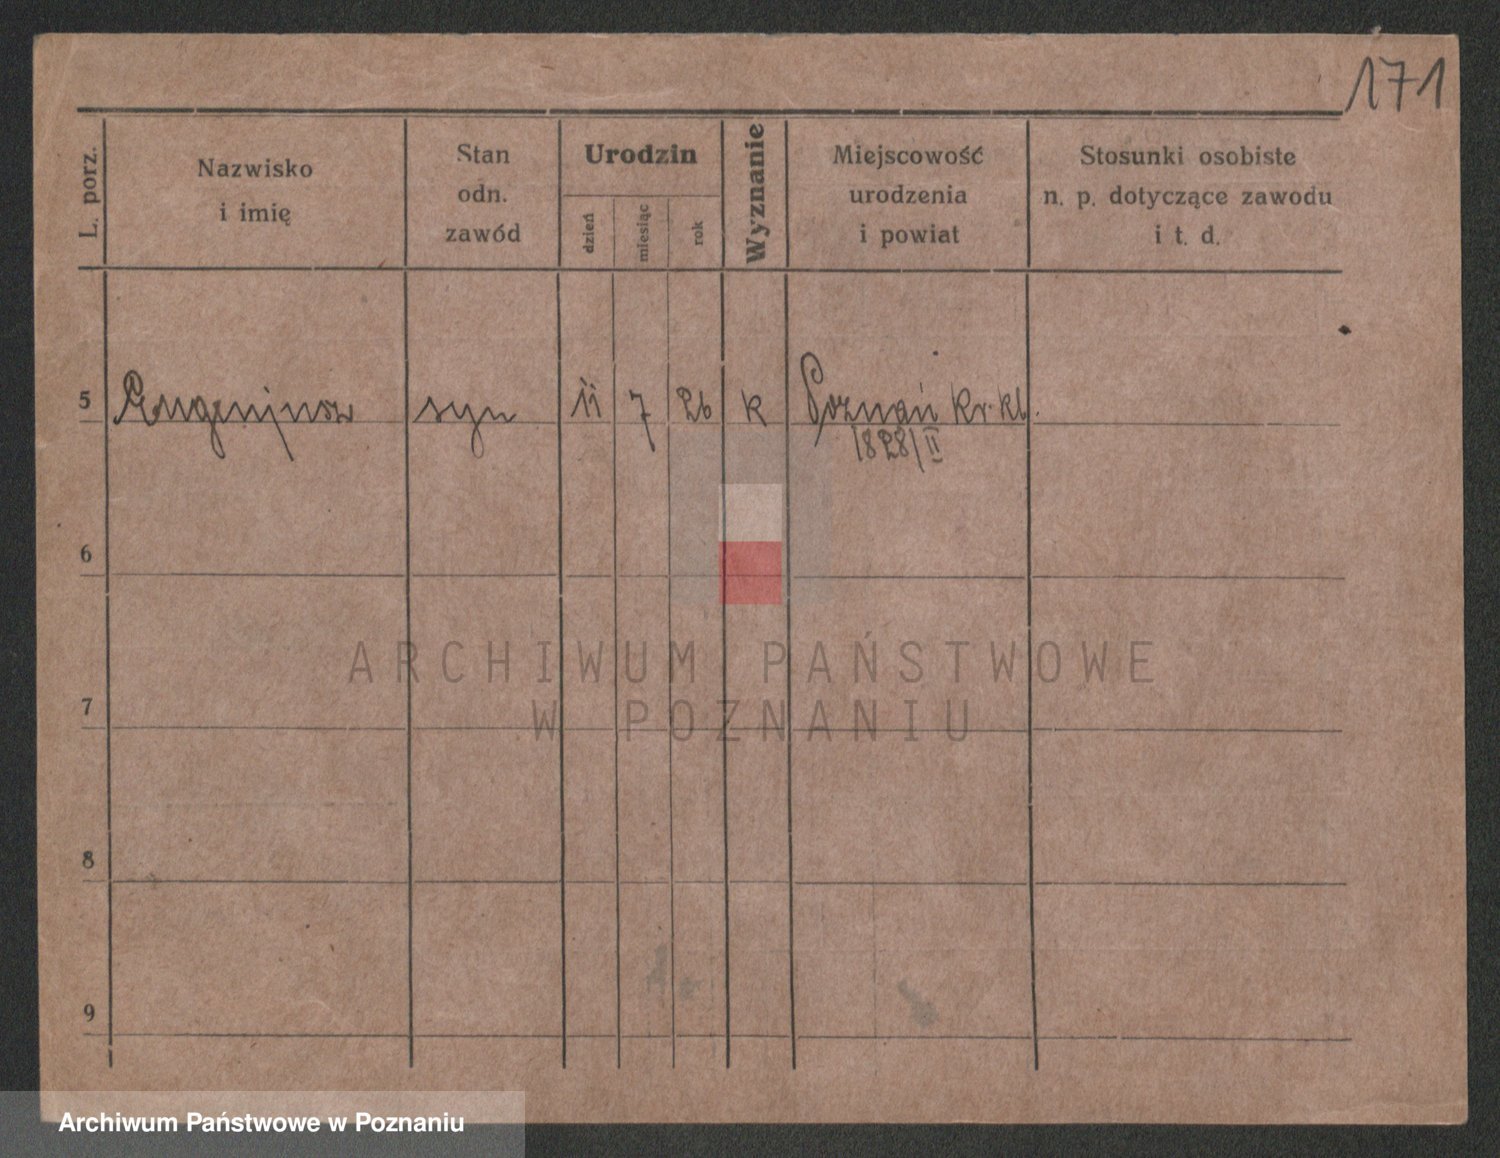 171
L. porz.
Nazwisko
i imię
Stan
odn.
zawód
Urodzin
dzień
miesiąc
rok
Wyznanie
Miejscowość
urodzenia
i powiat
Stosunki osobiste
n. p. dotyczące zawodu
i t. d.
5 Eugenjusz syn 11 7 26 k Poznań kr. kl.
1828/II
6
7
8
9
ARCHIWUM PAŃSTWOWE
W POZNANIU
Archiwum Państwowe w Poznaniu